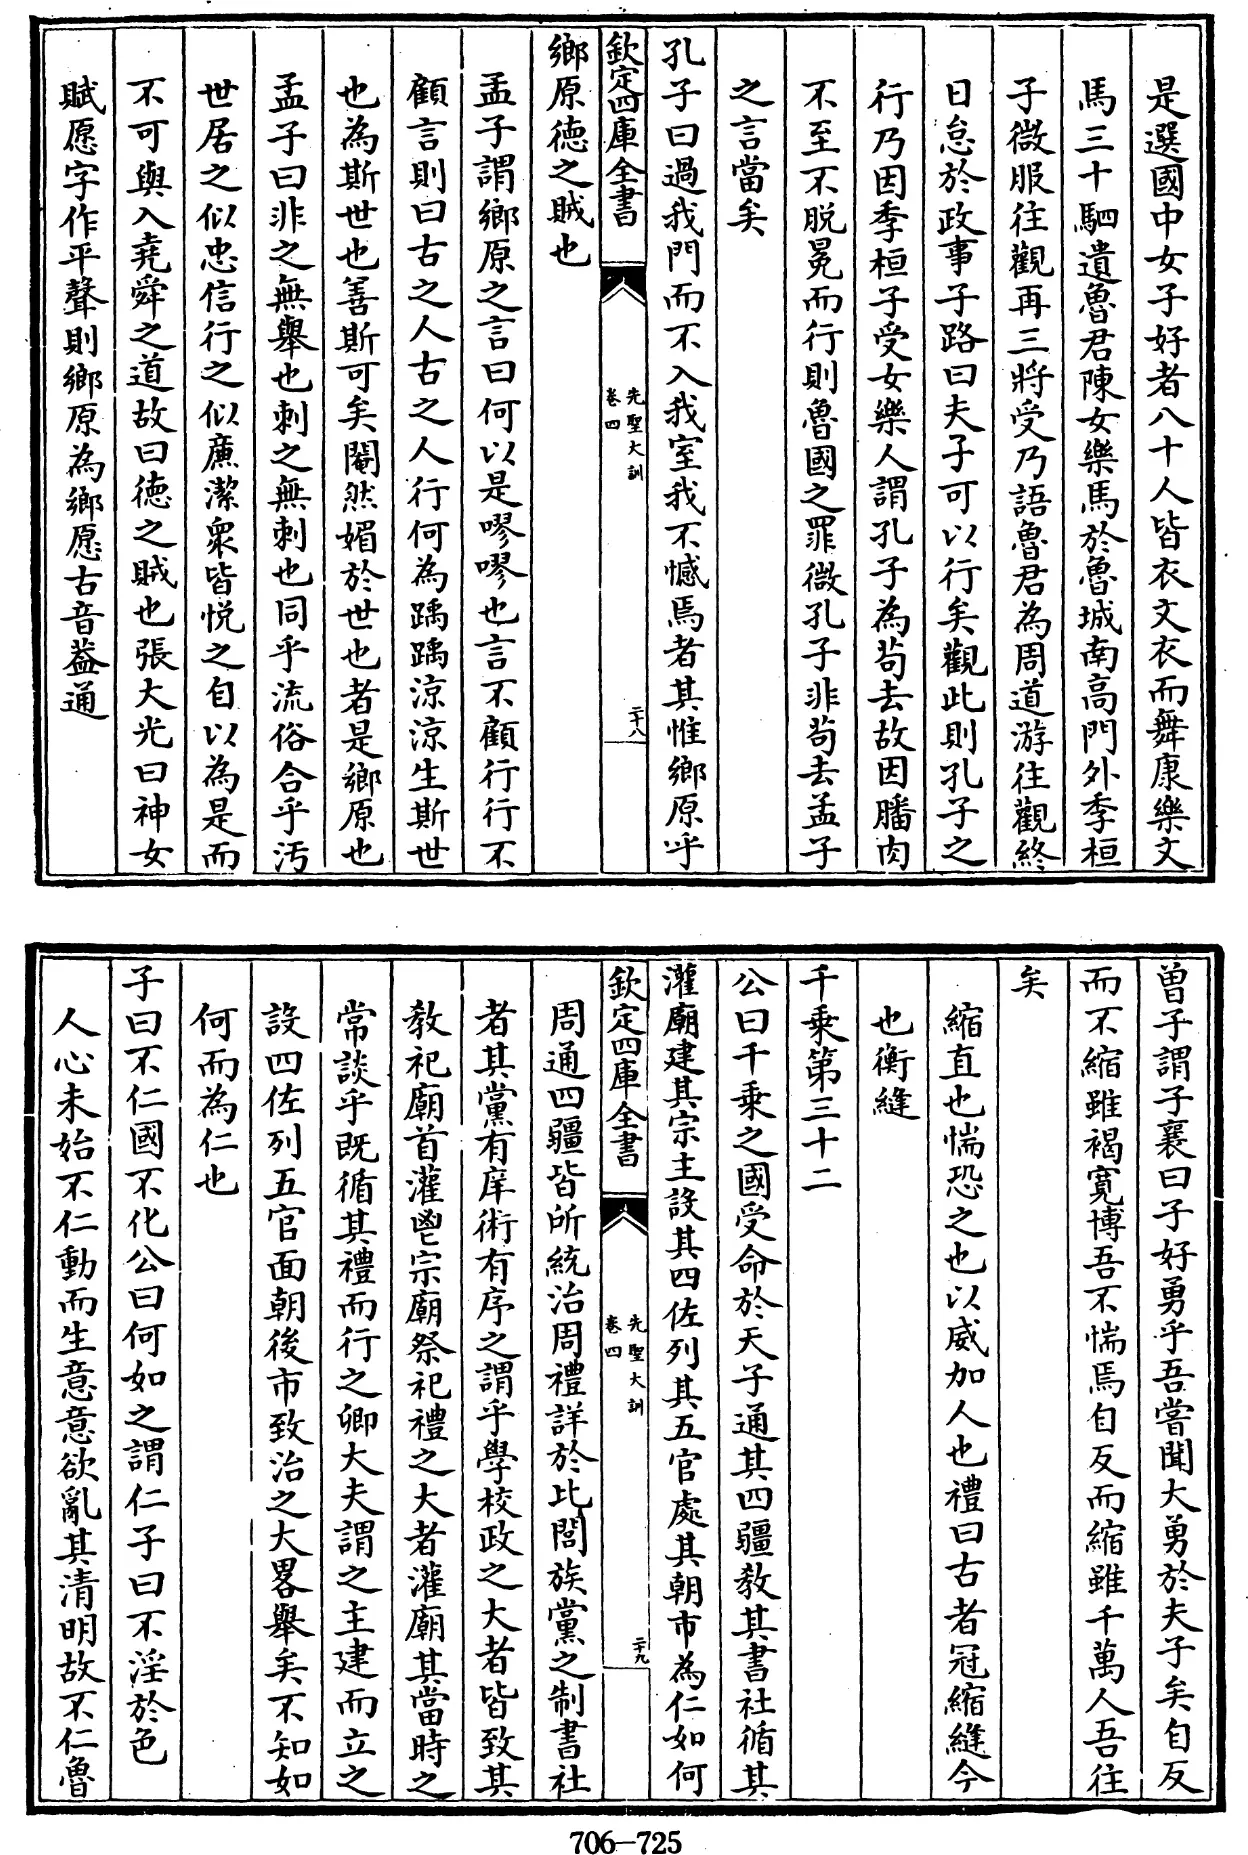 是選國中女子好者八十人皆衣文衣而舞康樂文
馬三十駟遺魯君陳女樂馬於魯城南高門外季桓
子微服往觀再三將受乃語魯君為周道游往觀終
日怠於政事子路曰夫子可以行矣觀此則孔子之
行乃因季桓子受女樂人謂孔子為苟去故因膰肉
不至不脫冕而行則魯國之罪微孔子非苟去孟子
之言當矣
孔子曰過我門而不入我室我不憾焉者其惟鄉原乎
欽定四庫全書
先聖大訓
卷四
二十八
鄉原德之賊也
孟子謂鄉原之言曰何以是嘐嘐也言不顧行行不
顧言則曰古之人古之人行何為踽踽涼涼生斯世
也為斯世也善斯可矣閹然媚於世也者是鄉原也
孟子曰非之無舉也刺之無刺也同乎流俗合乎污
世居之似忠信行之似廉潔衆皆悅之自以為是而
不可與入堯舜之道故曰德之賊也張大光曰神女
賦愿字作平聲則鄉原為鄉愿古音葢通
曾子謂子襄曰子好勇乎吾嘗聞大勇於夫子矣自反
而不縮雖褐寬博吾不惴焉自反而縮雖千萬人吾往
矣
縮直也惴恐之也以威加人也禮曰古者冠縮縫今
也衡縫
千乗第三十二
公曰千乗之國受命於天子通其四疆教其書社循其
灌廟建其宗主設其四佐列其五官處其朝市為仁如何
欽定四庫全書
先聖大訓
卷四
二十九
周通四疆皆所統治周禮詳於比閭族黨之制書社
者其黨有庠術有序之謂乎學校政之大者皆致其
教祀廟首灌鬯宗廟祭祀禮之大者灌廟其當時之
常談乎既循其禮而行之卿大夫謂之主建而立之
設四佐列五官面朝後市致治之大畧舉矣不知如
何而為仁也
子曰不仁國不化公曰何如之謂仁子曰不淫於色
人心未始不仁動而生意意欲亂其清明故不仁魯
706—725